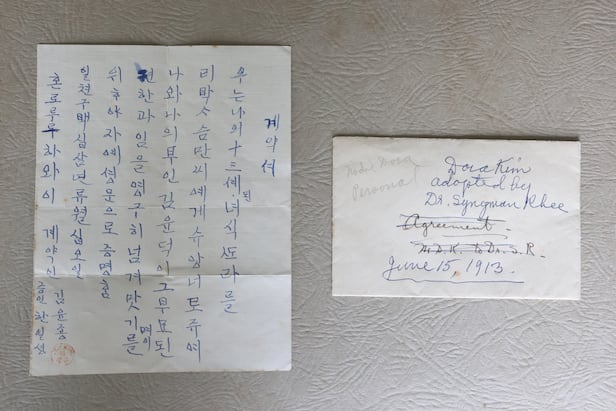 계약셔
우는나의十三세된녀식 또라를
리박ᄉ승만씨에게슈양녀로쥬며
나와나의부인김윤덕이그부모된
권한과일을영구히넘겨맛기를
일쳔구백십삼년류월십오일
혼로루루 하와이 계약인 김윤종
증인 한일셩
Personal
Dora Kim
adopted by
Dr. Syngman Rhee
Agreement.
to Dr. S. R.
June 15, 1913.